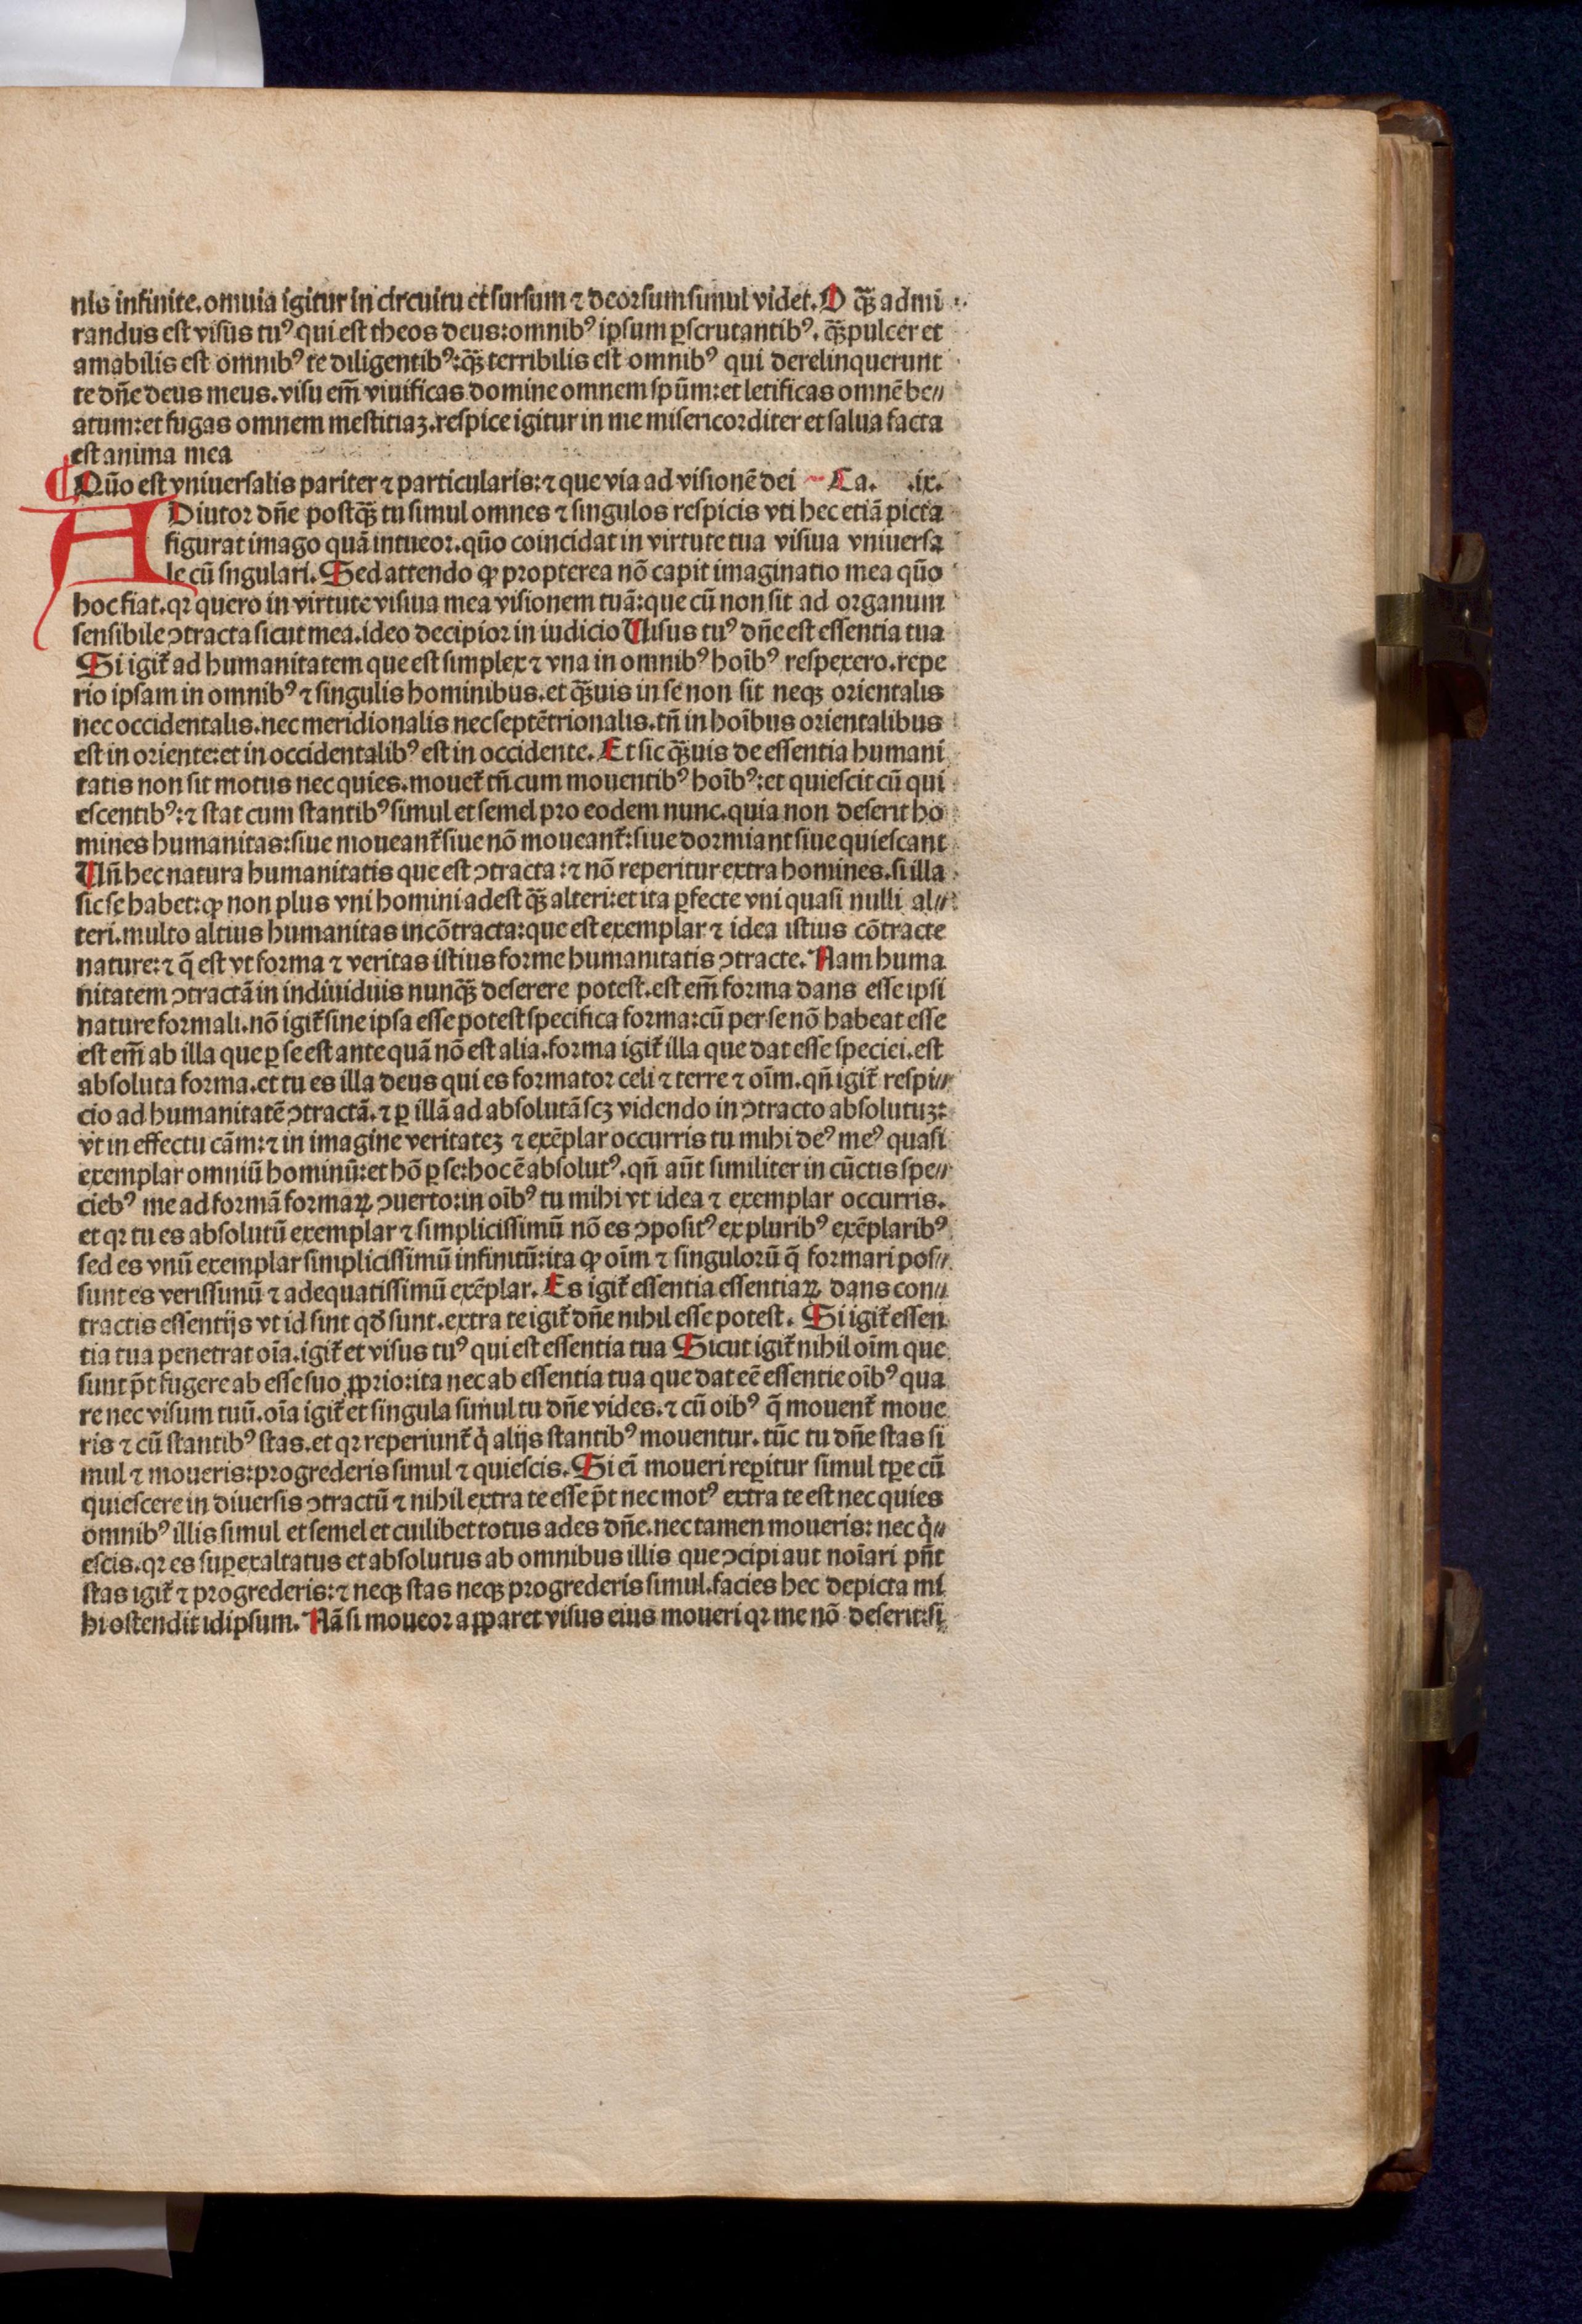 nis infinite.omnia igitur in circuitu et sursum ⁊ deorsum simul videt.O q̄ꝫ admi
randus est visus tuꝰ qui est theos deus:omnibꝰ ipsum ꝑscrutantibꝰ. q̄ꝫ pulcer et
amabilis est omnibꝰ te diligentibꝰ:q̄ꝫ terribilis est omnibꝰ qui derelinquerunt
te dñe deus meus.visu em̄ viuificas domine omnem spūm:et letificas omnē be⸗
atum:et fugas omnem mestitiaꝫ.respice igitur in me misericorditer et salua facta
est anima mea
¶ Quō est vniuersalis pariter ⁊ particularis:⁊ que via ad visionē dei Ca. .ix.
ADiutor dñe postq̄ꝫ tu simul omnes ⁊ singulos respicis vti hec etiā picta
figurat imago quā intueor.quō coincidat in virtute tua visiua vniuersa
le cū sngulari.Sed attendo ꝙ propterea nō capit imaginatio mea quō
hoc fiat.qꝛ quero in virtute visiua mea visionem tuā:que cū non sit ad organum
sensibile ꝯtracta sicut mea.ideo decipior in iudicio Uisus tuꝰ dñe est essentia tua
Si igit̄ ad humanitatem que est simplex ⁊ vna in omnibꝰ hoībꝰ respexero.repe
rio ipsam in omnibꝰ ⁊ singulis hominibus.et q̄ꝫuis in se non sit neqꝫ orientalis
nec occidentalis.nec meridionalis nec septētrionalis.tñ in hoībus orientalibus
est in oriente:et in occidentalibꝰ est in occidente.Et sic q̄ꝫuis de essentia humani
tatis non sit motus nec quies.mouet̄ tñ cum mouentibꝰ hoībꝰ:et quiescit cū qui
escentibꝰ:⁊ stat cum stantibꝰ simul et semel pro eodem nunc.quia non deserit ho
mines humanitas:siue moueant̄ siue nō moueant̄:siue dormiant siue quiescant
Uñ hec natura humanitatis que est ꝯtracta:⁊ nō reperitur extra homines.si illa
sic se habet:ꝙ non plus vni homini adest q̄ꝫ alteri:et ita ꝑfecte vni quasi nulli al⸗
teri.multo altius humanitas incōtracta:que est exemplar ⁊ idea istius cōtracte
nature:⁊ q̄ est vt forma ⁊ veritas istius forme humanitatis ꝯtracte.Nam huma
nitatem ꝯtractā in indiuiduis nunq̄ꝫ deserere potest.est em̄ forma dans esse ipsi
nature formali.nō igit̄ sine ipsa esse potest specifica forma:cū per se nō habeat esse
est em̄ ab illa que ꝑ se est ante quā nō est alia.forma igit̄ illa que dat esse speciei.est
absoluta forma.et tu es illa deus qui es formator celi ⁊ terre ⁊ oīm.qñ igit̄ respi⸗
cio ad humanitatē ꝯtractā.⁊ ꝑ illā ad absolutā scꝫ videndo in ꝯtracto absolutuꝫ:
vt in effectu cām:⁊ in imagine veritateꝫ ⁊ exēplar occurris tu mihi deꝰ meꝰ quasi
exemplar omniū hominū:et hō ꝑ se:hoc ē absolutꝰ.qñ aūt similiter in cūctis spe⸗
ciebꝰ me ad formā formaꝝ ꝯuerto:in oībꝰ tu mihi vt idea ⁊ exemplar occurris.
et qꝛ tu es absolutū exemplar ⁊ simplicissimū nō es ꝯpositꝰ ex pluribꝰ exēplaribꝰ
sed es vnū exemplar simplicissimū infinitū:ita ꝙ oīm ⁊ singulorū q̄ formari pos⸗
sunt es verissimū ⁊ adequatissimū exēplar.Es igit̄ essentia essentiaꝝ dans con⸗
tractis essentijs vt id sint qđ sunt.extra te igit̄ dñe nihil esse potest.Si igit̄ essen
tia tua penetrat oīa.igit̄ et visus tuꝰ qui est essentia tua Sicut igit̄ nihil oīm que
sunt p̄t fugere ab esse suo ꝓprio:ita nec ab essentia tua que dat eē essentie oībꝰ qua
re nec visum tuū.oīa igit̄ et singula simul tu dñe vides.⁊ cū oibꝰ q̄ mouent̄ moue
ris ⁊ cū stantibꝰ stas.et qꝛ reperiunt̄ q̇ alijs stantibꝰ mouentur.tūc tu dñe stas si
mul ⁊ moueris:progrederis simul ⁊ quiescis.Si eī moueri reꝑitur simul tꝑe cū
quiescere in diuersis ꝯtractū ⁊ nihil extra te esse p̄t nec motꝰ extra te est nec quies
omnibꝰ illis simul et semel et cuilibet totus ades dñe.nec tamen moueris:nec q̇⸗
escis.qꝛ es suꝑexaltatus et absolutus ab omnibus illis que ꝯcipi aut noīari pñt
stas igit̄ ⁊ progrederis:⁊ neqꝫ stas neqꝫ progrederis simul.facies hec depicta mi
hi ostendit idipsum.Nā si moueor aꝑꝑaret visus eius moueri qꝛ me nō deserit:si